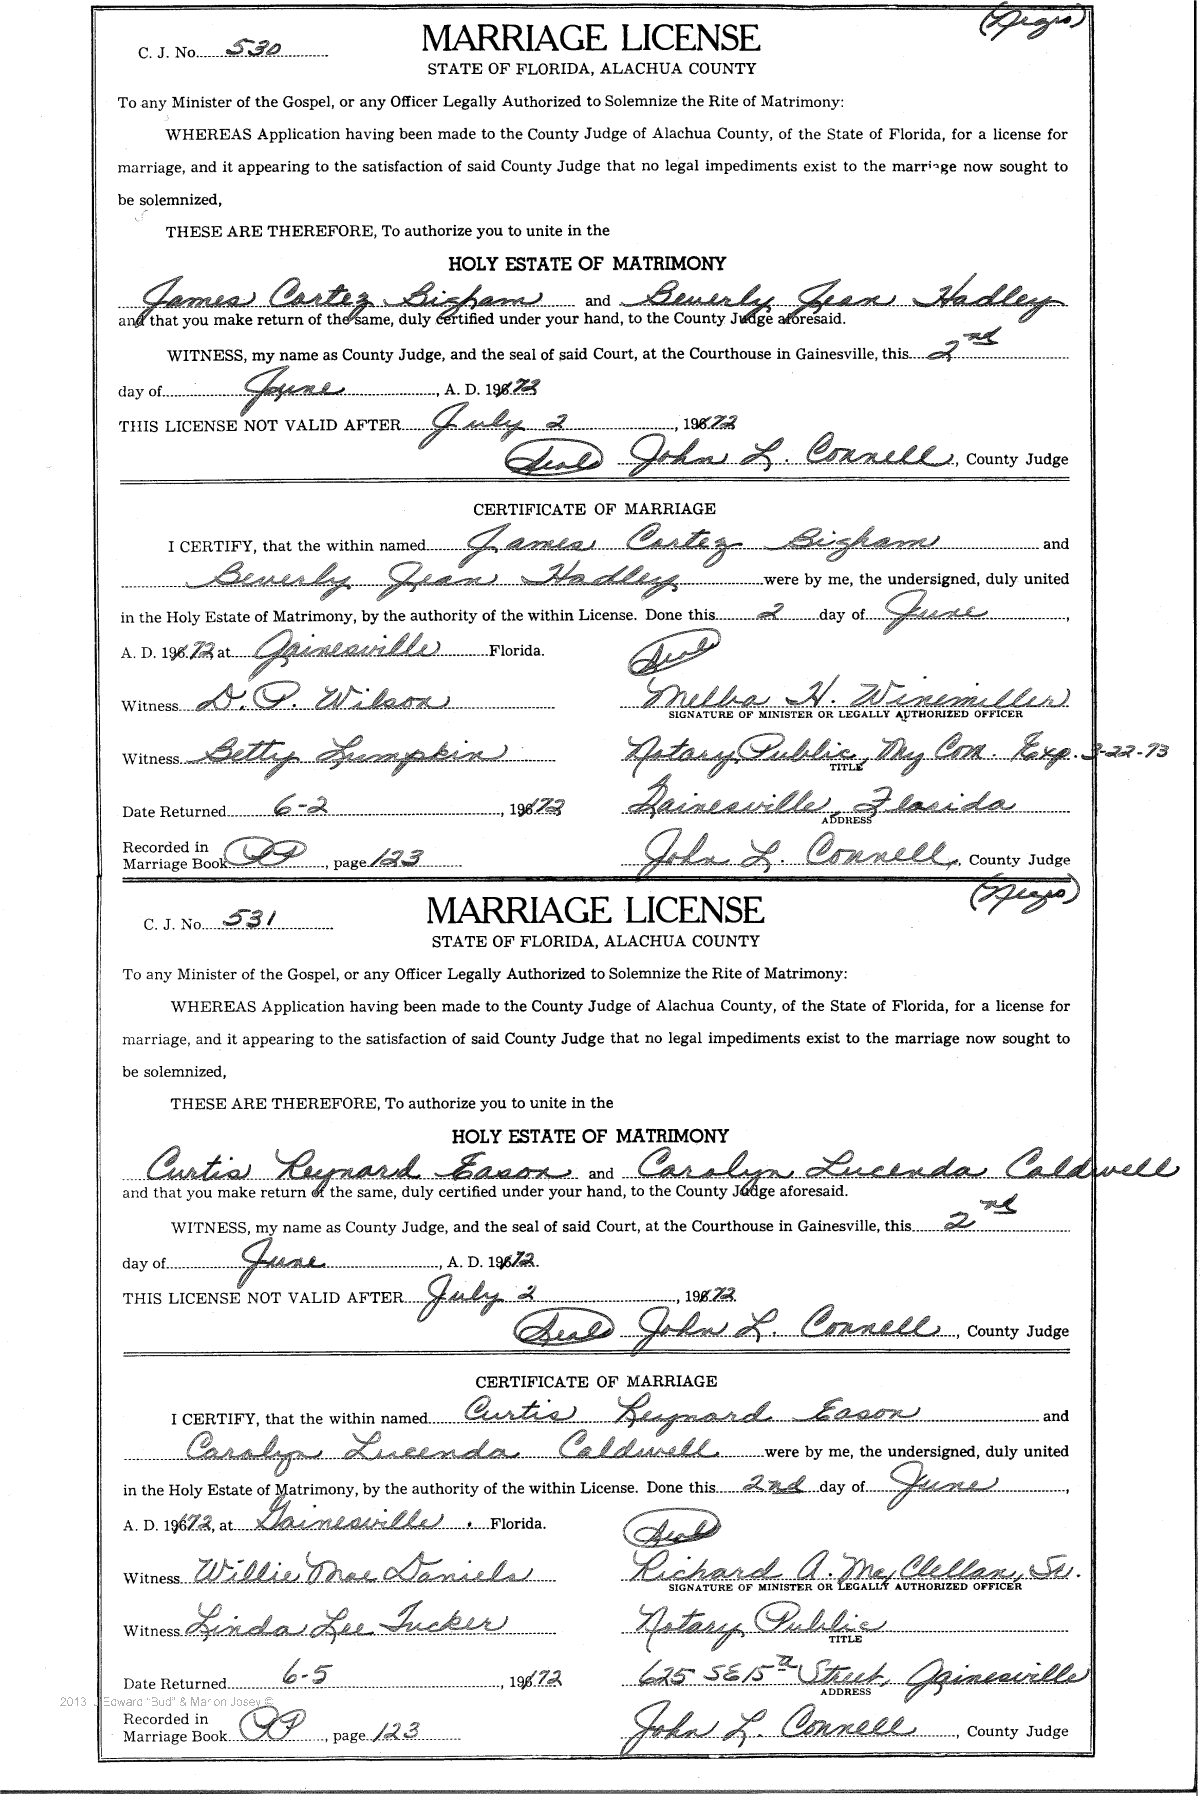 (Negro)
C. J. No. 530
MARRIAGE LICENSE
STATE OF FLORIDA, ALACHUA COUNTY
To any Minister of the Gospel, or any Officer Legally Authorized to Solemnize the Rite of Matrimony:
WHEREAS Application having been made to the County Judge of Alachua County, of the State of Florida, for a license for
marriage, and it appearing to the satisfaction of said County Judge that no legal impediments exist to the marriage now sought to
be solemnized,
THESE ARE THEREFORE, To authorize you to unite in the
HOLY ESTATE OF MATRIMONY
James Cortez Bigham and Beverly Jean Hadley
and that you make return of the same, duly certified under your hand, to the County Judge aforesaid.
WITNESS, my name as County Judge, and the seal of said Court, at the Courthouse in Gainesville, this 2nd
day of June, A. D. 1972
THIS LICENSE NOT VALID AFTER July 2, 1972
(Seal) John L. Connell, County Judge
CERTIFICATE OF MARRIAGE
I CERTIFY, that the within named James Cortez Bigham and
Beverly Jean Hadley were by me, the undersigned, duly united
in the Holy Estate of Matrimony, by the authority of the within License. Done this 2 day of June,
A. D. 1972 at Gainesville Florida. (Seal)
Witness D. P. Wilson Melba H. Winemiller
SIGNATURE OF MINISTER OR LEGALLY AUTHORIZED OFFICER
Witness Betty Lumpkin Notary Public, My Com. Exp. 3-22-73
TITLE
Date Returned 6-2, 1972 Gainesville, Florida
ADDRESS
Recorded in
Marriage Book PP, page 123 John L. Connell, County Judge
(Negro)
C. J. No. 531
MARRIAGE LICENSE
STATE OF FLORIDA, ALACHUA COUNTY
To any Minister of the Gospel, or any Officer Legally Authorized to Solemnize the Rite of Matrimony:
WHEREAS Application having been made to the County Judge of Alachua County, of the State of Florida, for a license for
marriage, and it appearing to the satisfaction of said County Judge that no legal impediments exist to the marriage now sought to
be solemnized,
THESE ARE THEREFORE, To authorize you to unite in the
HOLY ESTATE OF MATRIMONY
Curtis Reynard Eason and Carolyn Lucenda Caldwell
and that you make return of the same, duly certified under your hand, to the County Judge aforesaid.
WITNESS, my name as County Judge, and the seal of said Court, at the Courthouse in Gainesville, this 2nd
day of June, A. D. 1972.
THIS LICENSE NOT VALID AFTER July 2, 1972
(Seal) John L. Connell, County Judge
CERTIFICATE OF MARRIAGE
I CERTIFY, that the within named Curtis Reynard Eason and
Carolyn Lucenda Caldwell were by me, the undersigned, duly united
in the Holy Estate of Matrimony, by the authority of the within License. Done this 2nd day of June,
A. D. 1972, at Gainesville. Florida. (Seal)
Witness Willie Mae Daniels Richard A. McClellan, Sr.
SIGNATURE OF MINISTER OR LEGALLY AUTHORIZED OFFICER
Witness Linda Lee Tucker Notary Public
TITLE
Date Returned 6-5, 1972 625 SE 15th Street, Gainesville
ADDRESS
2013 J Edward "Bud" & Marion Josey ©
Recorded in
Marriage Book PP, page 123 John L. Connell, County Judge